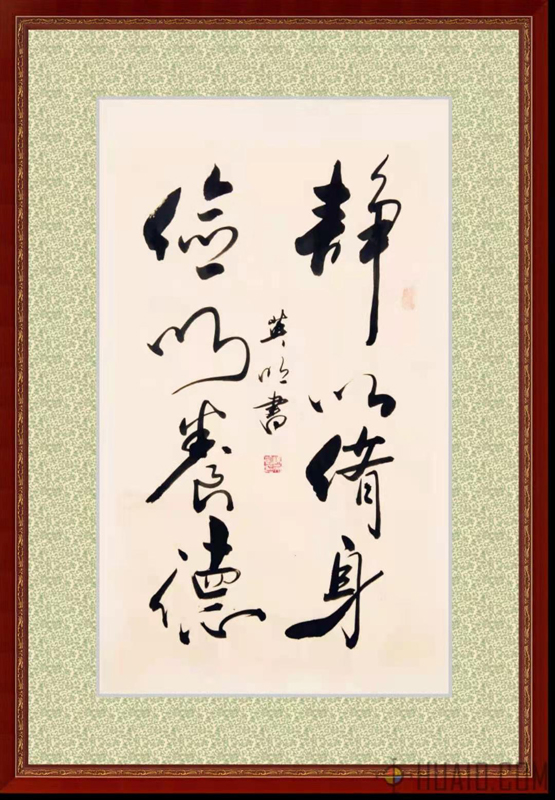 静以脩身
俭以養德
英明書
HUAID.COM